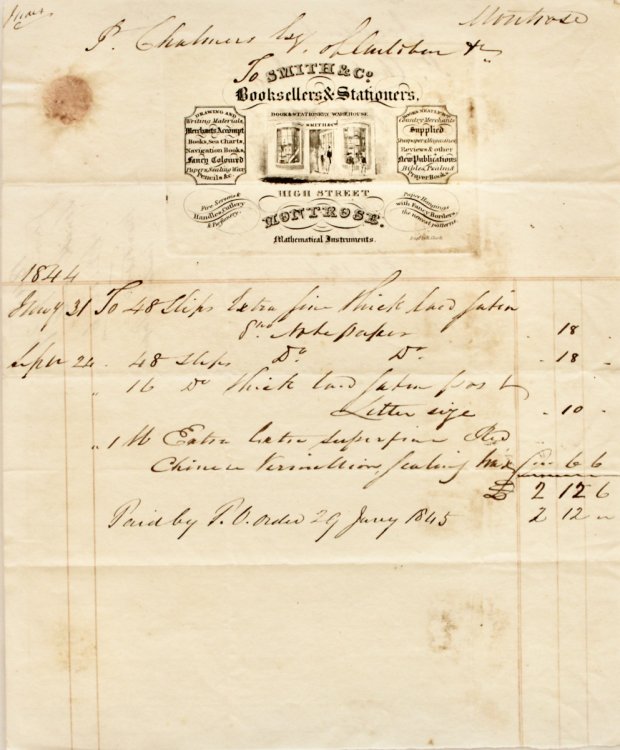 Montrose
P. Chalmers Esq. of Auldbar &c
To SMITH & Co.
Booksellers & Stationers,
DRAWING AND
Writing Materials,
Merchants Accompt
Books, Sea Charts,
Navigation Books,
Fancy Coloured
Papers, Sealing Wax,
Pencils &c.
BOOK & STATIONERY WAREHOUSE
SMITH & Co
Country Merchants
Supplied
Reviews & other
New Publications
Bibles, Psalm &
Prayer Books.
Fire Screens &
Handles, Cutlery
& Perfumery.
HIGH STREET
MONTROSE.
Mathematical Instruments.
Paper Hangings
with Fancy Borders,
the newest patterns.
1844
Jany 31 To 48 Slips Extra fine thick laid satin
8vo Note paper " 18 "
24 " 48 Slips Do Do " 18 "
" 16 Do thick laid satin post
Letter size " 10 "
" 1 lb Extra Extra superfine Red
Chinese Vermillion Sealing Wax 6 6
£ 2 12 6
Paid by P.O. order 29 Jany 1845 2 12 "